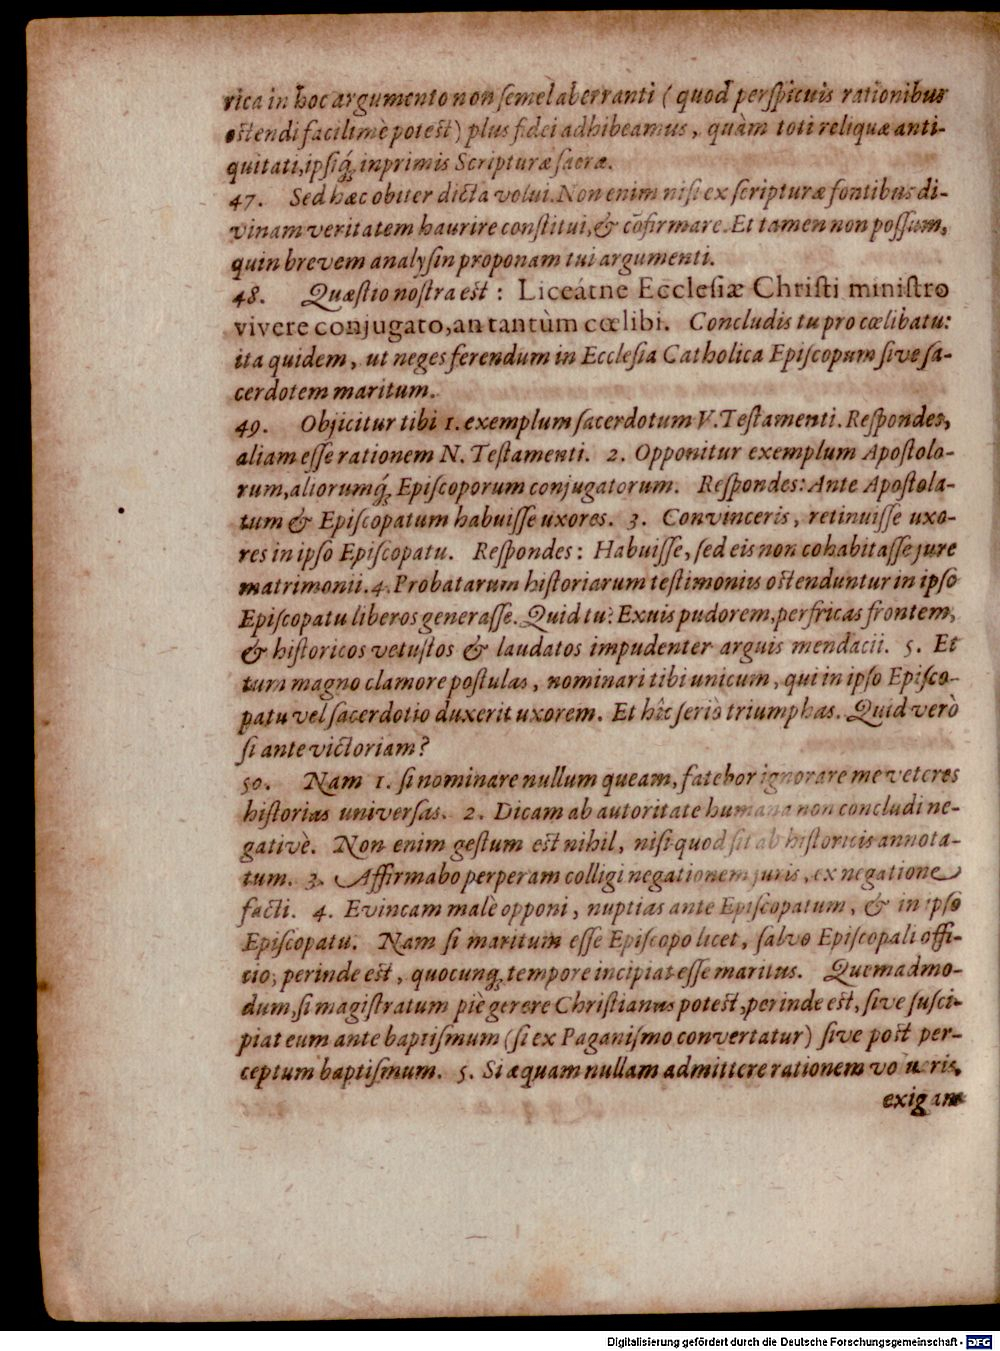 rica in hoc argumento non semel aberranti ( quod perspicuis rationibus
ostendi facilimè potest) plus fidei adhibeamus, quàm toti reliquæ anti-
quitati, ipsiq́; inprimis Scripturæ sacræ.
47. Sed hæc obiter dicta volui. Non enim nisi ex scripturæ fontibus di-
vinam veritatem haurire constitui, & cõfirmare. Et tamen non possum,
quin brevem analysin proponam tui argumenti.
48. Quæstio nostra est : Liceátne Ecclesiæ Christi ministro
vivere conjugato, an tantùm cœlibi. Concludis tu pro cœlibatu:
ita quidem, ut neges ferendum in Ecclesia Catholica Episcopum sive sa-
cerdotem maritum.
49. Objicitur tibi 1. exemplum sacerdotum V. Testamenti. Respondes,
aliam esse rationem N. Testamenti. 2. Opponitur exemplum Apostolo-
rum, aliorumq́; Episcoporum conjugatorum. Respondes: Ante Apostola-
tum & Episcopatum habuisse uxores. 3. Convinceris, retinuisse uxo-
res in ipso Episcopatu. Respondes: Habuisse, sed eis non cohabitasse jure
matrimonii. 4. Probatarum historiarum testimoniis ostenduntur in ipso
Episcopatu liberos generasse. Quid tu? Exuis pudorem, perfricas frontem,
& historicos vetustos & laudatos impudenter arguis mendacii. 5. Et
tum magno clamore postulas, nominari tibi unicum, qui in ipso Episco-
patu vel sacerdotio duxerit uxorem. Et hîc seriò triumphas. Quid verò
si ante victoriam?
50. Nam 1. si nominare nullum queam, fatebor ignorare me veteres
historias universas. 2. Dicam ab autoritate humana non concludi ne-
gativè. Non enim gestum est nihil, nisi quod sit ab historicis annota-
tum. 3. Affirmabo perperam colligi negationem juris, ex negatione
facti. 4. Evincam malè opponi, nuptias ante Episcopatum, & in ipso
Episcopatu. Nam si maritum esse Episcopo licet, salvo Episcopali offi-
cio, perinde est, quocunq; tempore incipiat esse maritus. Quemadmo-
dum, si magistratum piè gerere Christianus potest, perinde est, sive susci-
piat eum ante baptismum (si ex Paganismo convertatur) sive post per-
ceptum baptismum. 5. Si æquam nullam admittere rationem volueris,
exigam
Digitalisierung gefördert durch die Deutsche Forschungsgemeinschaft - DFG